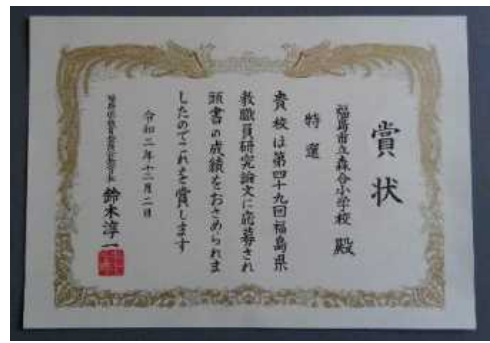 賞状
福島市立森合小学校 殿
特選
貴校は第四十九回福島県
教職員研究論文に応募され
頭書の成績をおさめられま
したのでこれを賞します
令和二年十二月二日
福島県教育委員会教育長 鈴木淳一